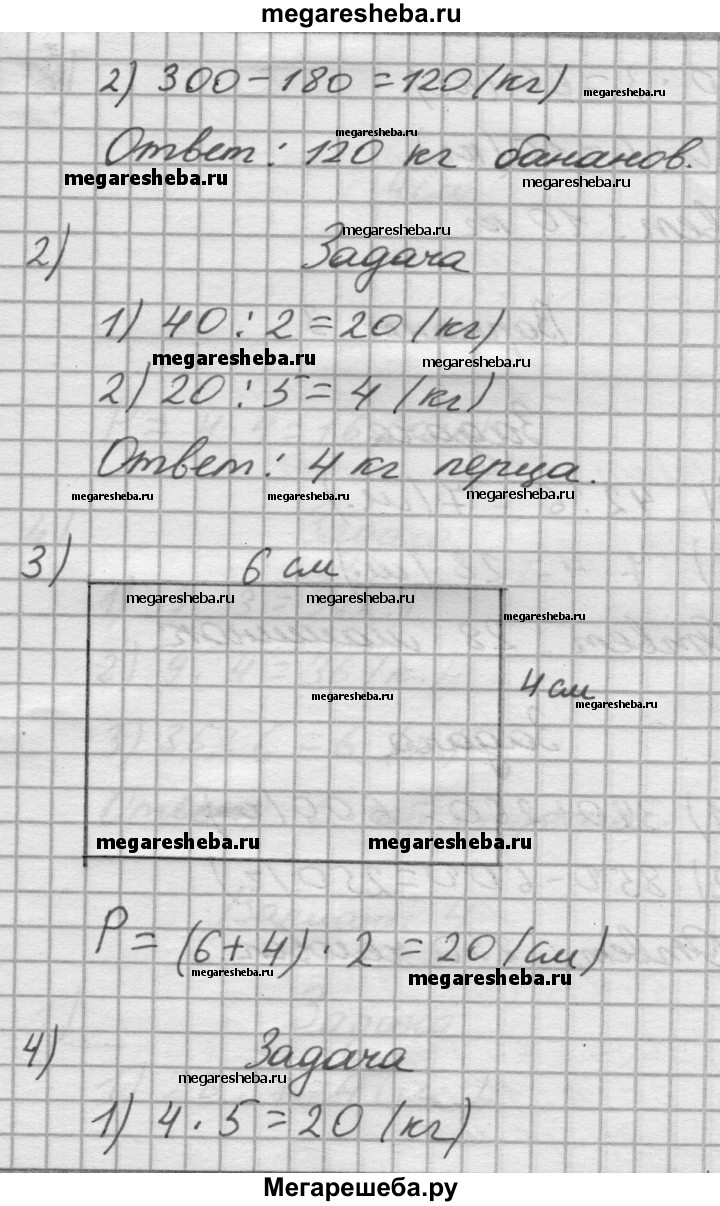 megaresheba.ru
2) 300 - 180 = 120 (кг) megaresheba.ru
megaresheba.ru
Ответ: 120 кг бананов.
megaresheba.ru megaresheba.ru
megaresheba.ru
2) Задача
1) 40 : 2 = 20 (кг)
megaresheba.ru megaresheba.ru
2) 20 : 5 = 4 (кг)
Ответ: 4 кг перца.
megaresheba.ru megaresheba.ru megaresheba.ru
3) 6 см
megaresheba.ru megaresheba.ru
megaresheba.ru
4 см
megaresheba.ru megaresheba.ru
megaresheba.ru megaresheba.ru
P = (6 + 4) · 2 = 20 (см)
megaresheba.ru megaresheba.ru
4) Задача
megaresheba.ru
1) 4 · 5 = 20 (кг)
Мегарешеба.ру